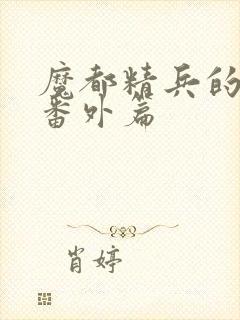 魔都精兵的
番外篇
肖婷